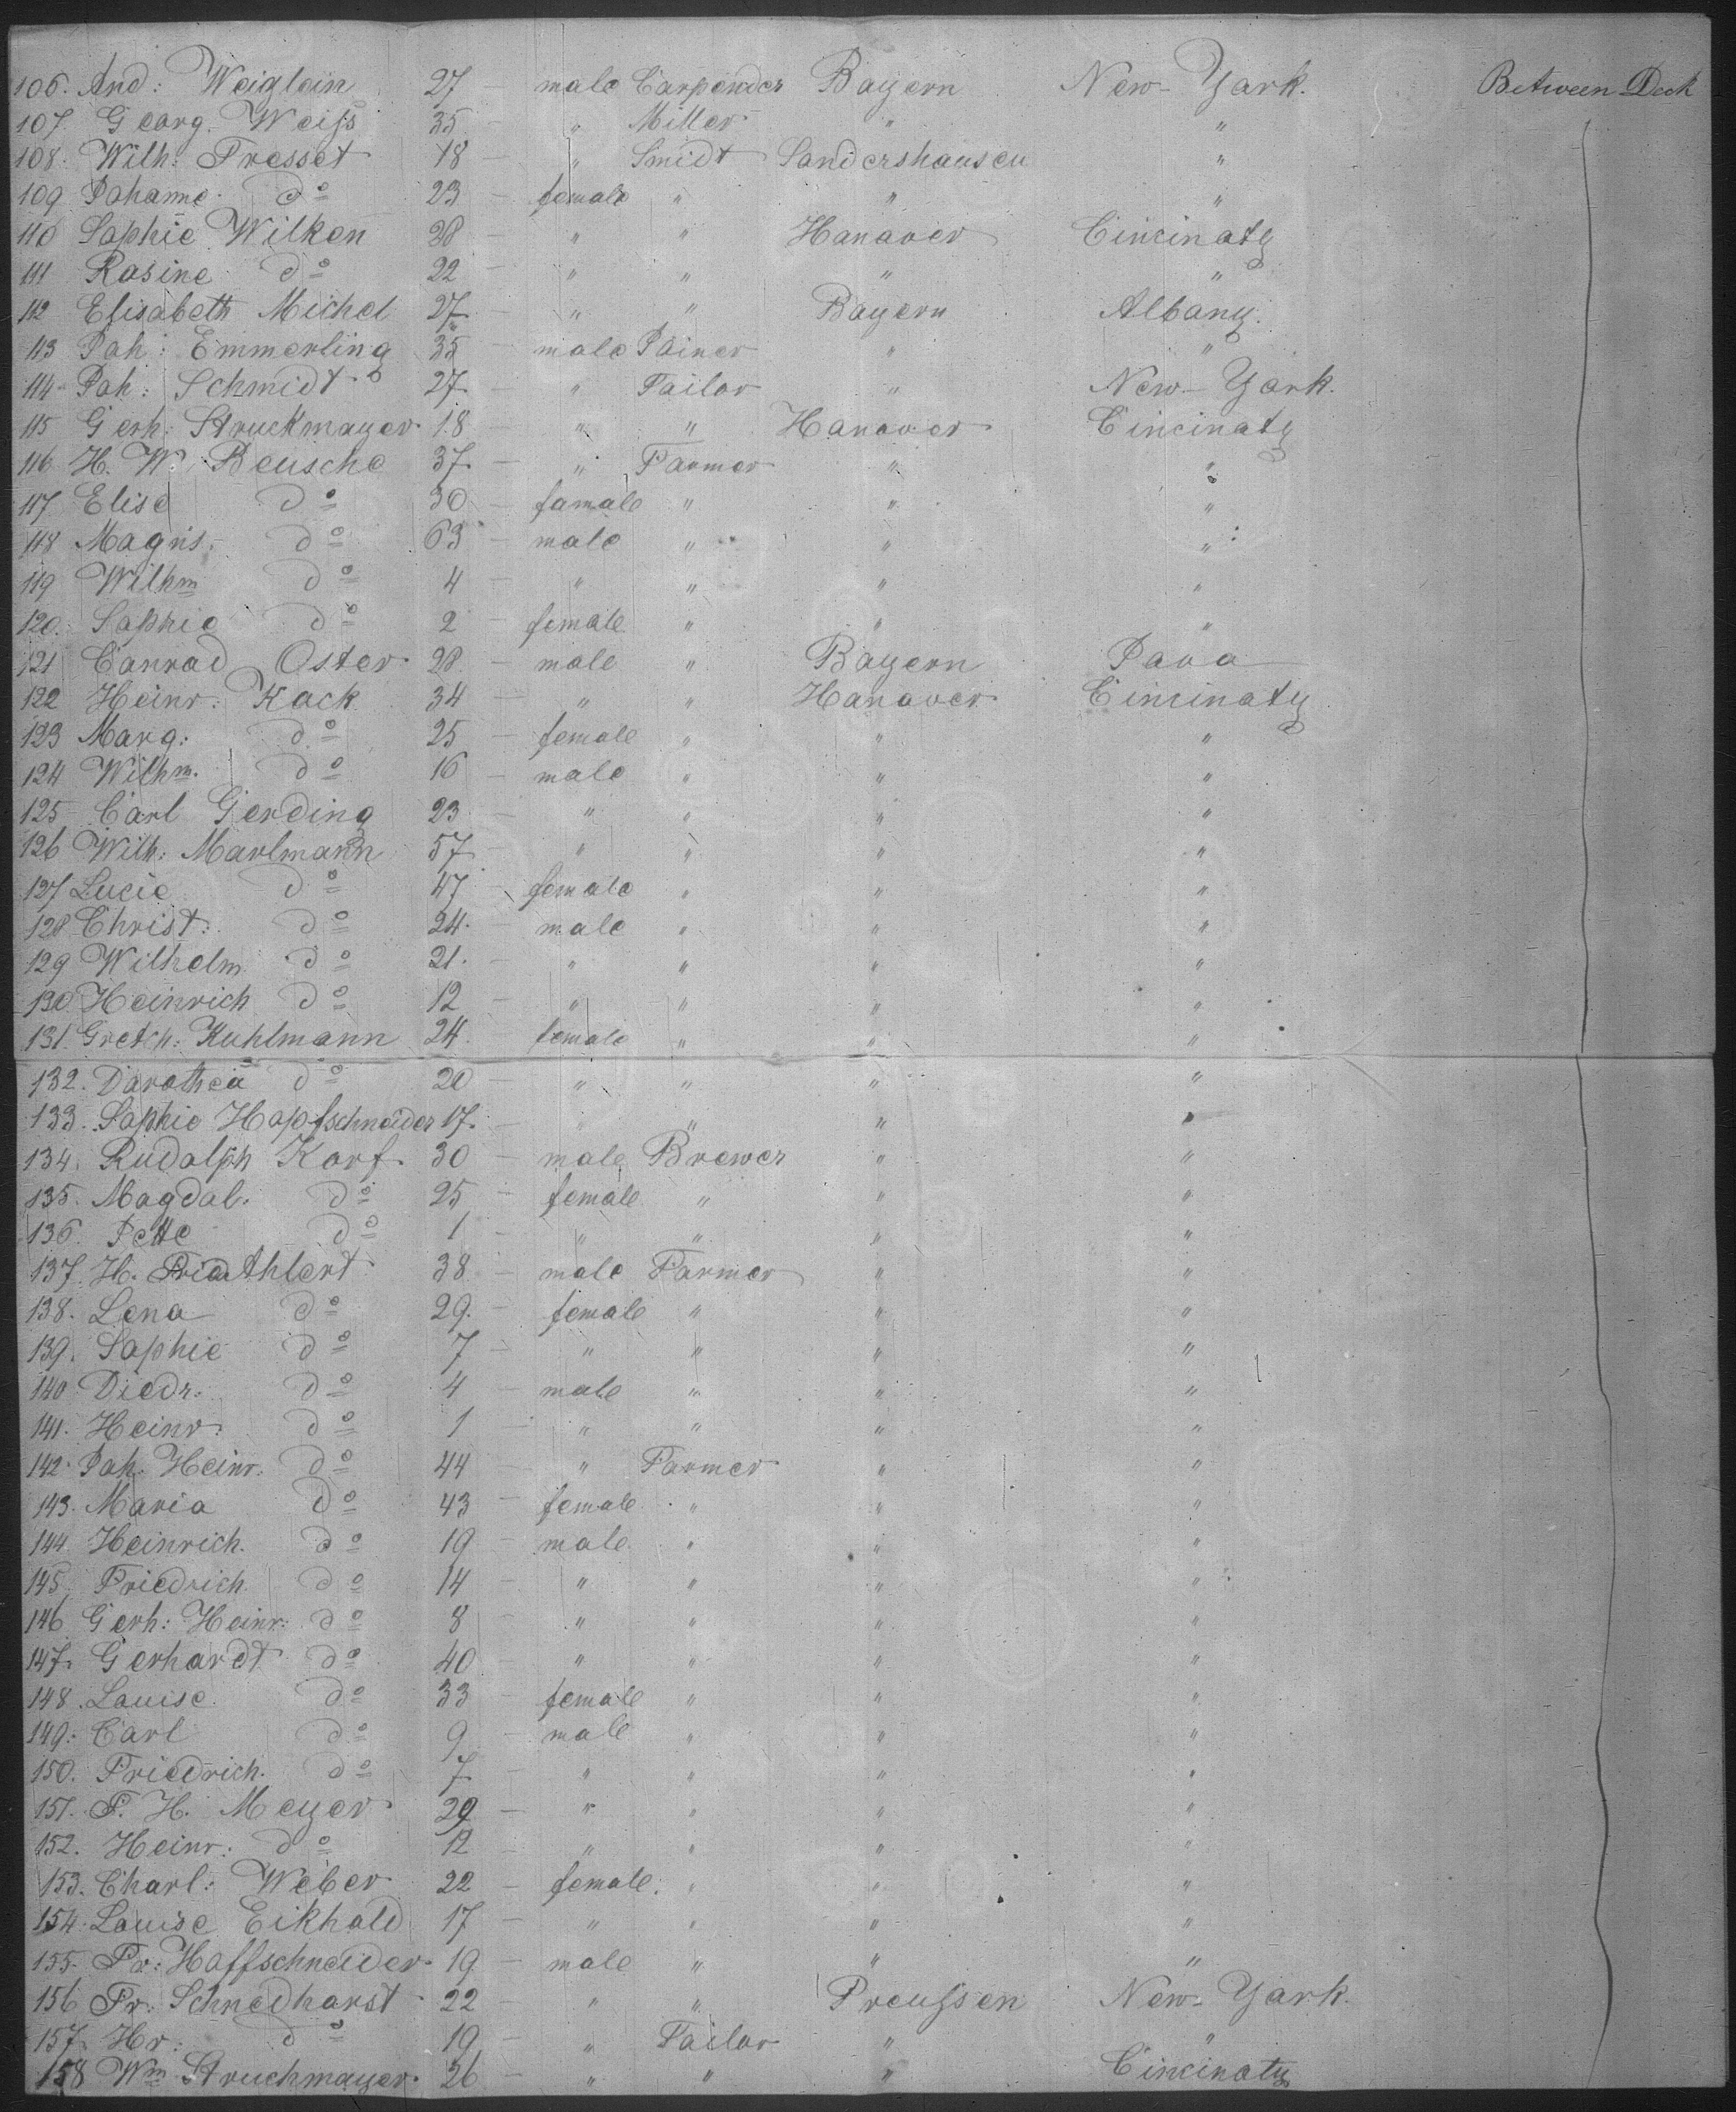 106. And: Weiglein 27 — male Carpender Bayern New-York. Between Deck
107 Georg. Weiss 35 — " Miller " "
108. Wilh: Tresset 18 — " Smidt Sandershausen "
109 Johanne. do 23 — female " " "
110 Sophie Wilken 28 — " " Hanover Cincinaty
111 Rosine do 22 — " " " "
112 Elisabeth Michel 27 — " " Bayern Albany.
113 Joh: Emmerling 35 — male Joiner " "
114 Joh: Schmidt 27 — " Tailor " New-York.
115 Gerh: Struckmayer 18 — " " Hanover Cincinaty
116 H. W. Beusche 37 — " Farmer " "
117 Elise do 30 — famale " " "
118 Magris. do 63 — male " " "
119 Wilhm do 4 — " " " "
120. Sophie do 2 — female " " "
121 Conrad Oster 28 — male " Bayern
122 Heinr. Kock 34 — " " Hanover Cincinaty
123 Marg: do 25 — female " " "
124 Wilhm. do 16 — male " " "
125 Carl Gerding 23 — " " " "
126 Wilh: Marlmann 57 — " " " "
127 Lucie do 47 — female " " "
128 Christ: do 24. — male " " "
129 Wilhelm do 21. — " " " "
130 Heinrich do 12 — " " " "
131. Gretch: Kuhlmann 24. — female " " "
132. Dorothea do 20 — " " " "
133. Sophie Hopfschneider 17. — " " " "
134. Rudolph Korf 30 — male Brewer " "
135. Magdal. do 25 — female " " "
136. Jette do 1 — " " " "
137. H. Fried Ahlert 38 — male Farmer " "
138. Lena do 29. — female " " "
139. Sophie do 7 — " " " "
140 Diedr. do 4 — male " " "
141. Heinr. do 1 — " " " "
142. Joh. Heinr. do 44 — " Farmer " "
143. Maria do 43 — female " " "
144. Heinrich. do 19 — male " " "
145. Friedrich do 14 — " " " "
146 Gerh: Heinr: do 8 — " " " "
147. Gerhardt do 40 — " " " "
148. Louise. do 33 — female " " "
149. Carl do 9 — male " " "
150. Friedrich. do 7 — " " " "
151. F. H. Meyer 29 — " " " "
152. Heinr: do 12 — " " " "
153. Charl: Weber 22 — female. " " "
154. Louise Eikhold 17 — " " " "
155. Fr: Hoffschneider 19 — male " " "
156 Fr: Schnedharst 22 — " " Preussen New-York.
157. Hr: do 19 — " Tailor " "
158 Wm Struchmayer 26 — " " " Cincinaty